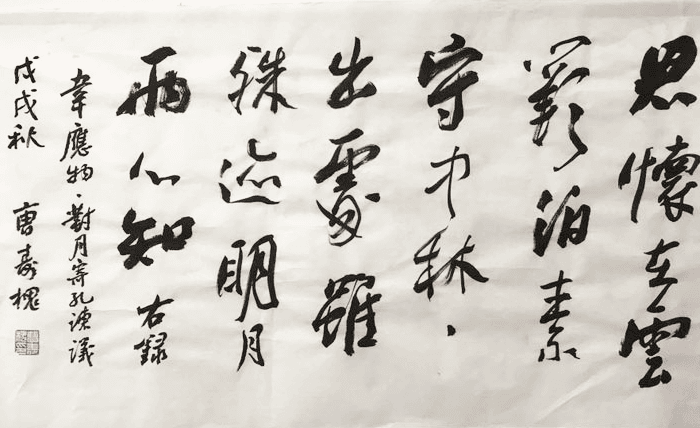 思懷在雲
闕泊素
守中林
出處雖
殊迹明月
兩心知 右錄
韋應物對月寄孔諫議
戊戌秋 壽槐